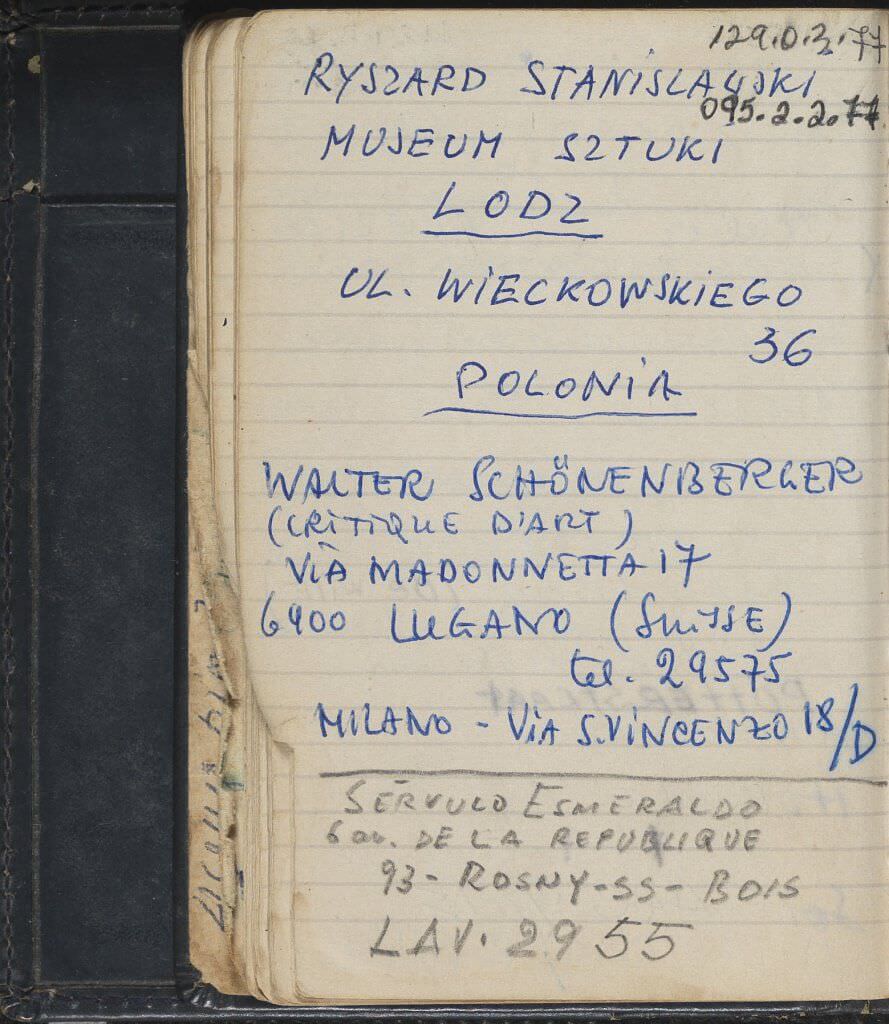 129.0.3.77
RYSZARD STANISLAWSKI
095.2.2.77
MUSEUM SZTUKI
LODZ
UL. WIECKOWSKIEGO
36
POLONIA
WALTER SCHÖNENBERGER
(CRITIQUE D'ART)
VIA MADONNETTA 17
6900 LUGANO (SUISSE)
tel. 29575
MILANO - VIA S.VINCENZO 18/D
SÉRVULO ESMERALDO
6 av. DE LA REPUBLIQUE
93 - ROSNY-SS-BOIS
LAV. 29 55